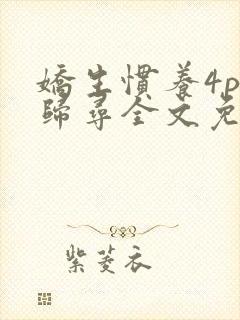 嬌生慣養4p
歸尋全文免
紫菱衣